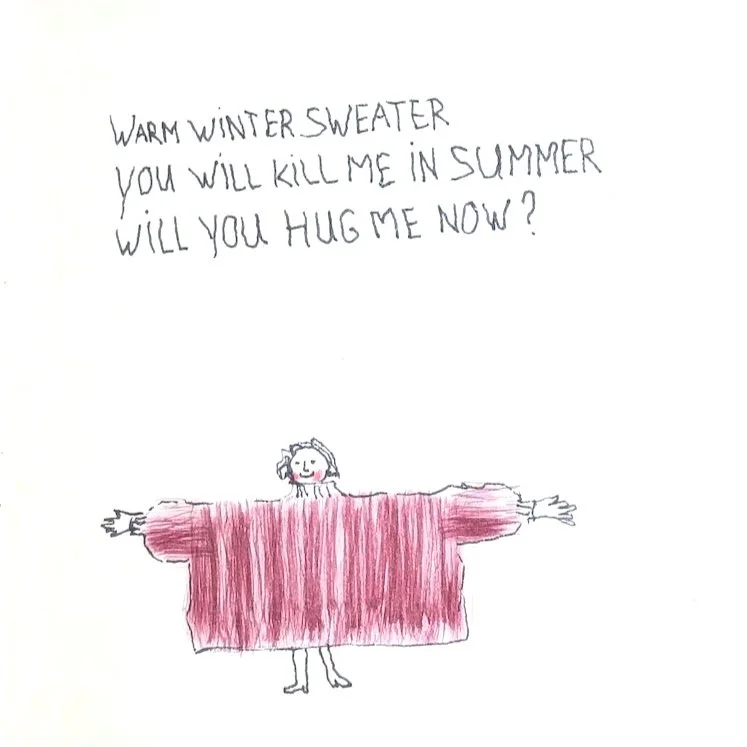 WARM WINTER SWEATER
YOU WILL KILL ME IN SUMMER
WILL YOU HUG ME NOW?